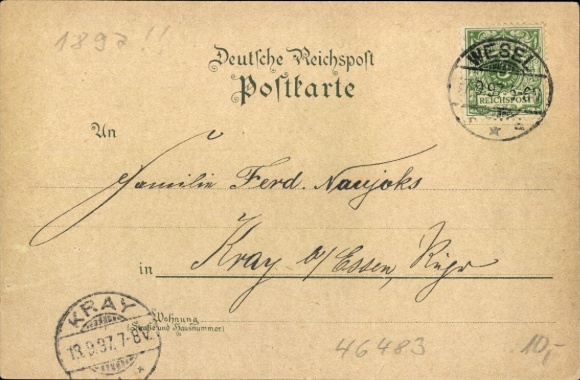 1897 !!
Deutsche Reichspost
Postkarte
WESEL
9.97
REICHSPOST
An
Familie Ferd. Naujoks
in Kray b/Essen, Ruhr
Wohnung
(Straße und Hausnummer)
KRAY
13.9.97. 7-8V.
46483
10,-